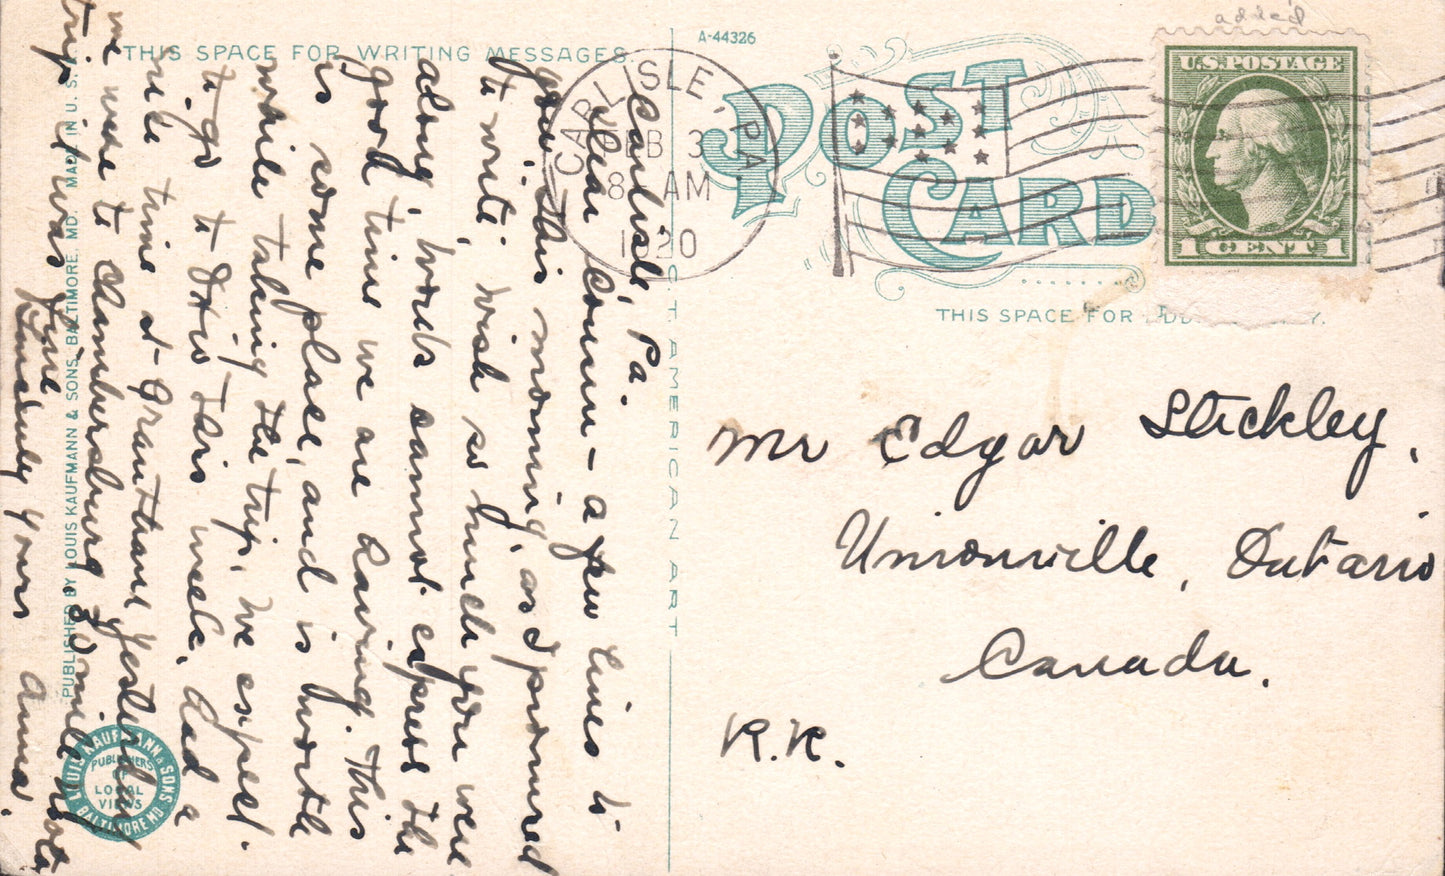 THIS SPACE FOR WRITING MESSAGES.
Carlisle, Pa.
Dear Cousin – a few lines to
you this morning, as I promised
to write, wish so much you were
along, words cannot express the
good time we are having. This
is some place, and is worth
while taking the trip, we expect
to go to Ohio this week. Had a
nice time at Grantham yesterday
we were to Chambersburg 30 mile
trip it was fine
Sincerely yours Anna.
PUBLISHED BY LOUIS KAUFMANN & SONS, BALTIMORE, MD. MADE IN U. S. A.
LOUIS KAUFMANN & SONS
BALTIMORE MD
PUBLISHERS
OF
LOCAL
VIEWS
A-44326
POST
CARD
CARLISLE, PA.
FEB 3
8 AM
1920
added
U.S. POSTAGE
1 CENT 1
THIS SPACE FOR ADDRESS ONLY.
S.T. AMERICAN ART
Mr Edgar Stickley,
Unionville, Ontario
Canada.
R.R.